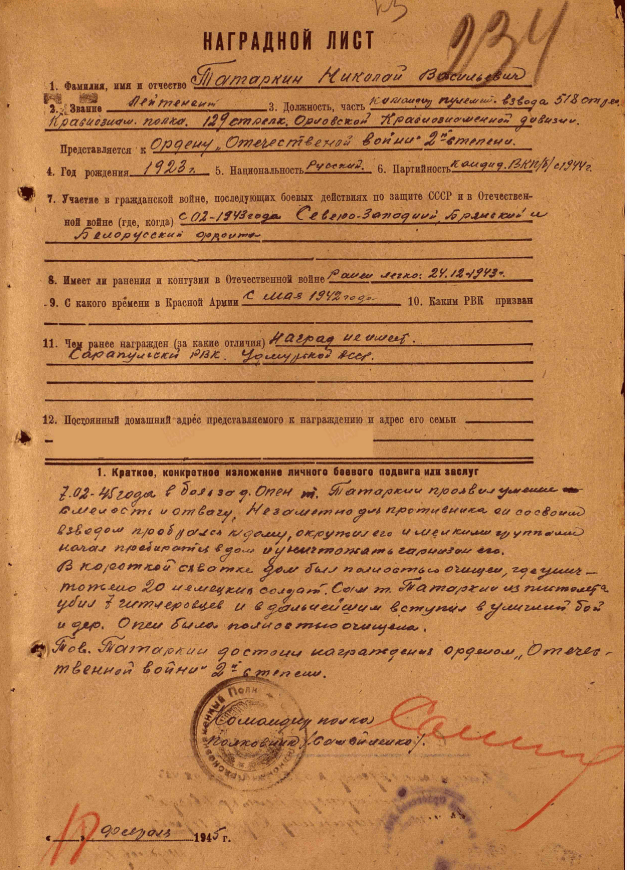 234
НАГРАДНОЙ ЛИСТ
1. Фамилия, имя и отчество Татаркин Николай Васильевич
2. Звание Лейтенант 3. Должность, часть Командир пулемет. взвода 518 стрел.
Краснознам. полка. 129 стрелк. Орловской Краснознаменной дивизии.
Представляется к Ордену „Отечественной войны" 2й степени.
4. Год рождения 1923 г. 5. Национальность Русский. 6. Партийность Кандид. ВКП/б/ с 1944 г.
7. Участие в гражданской войне, последующих боевых действиях по защите СССР и в Отечествен-
ной войне (где, когда) С 02-1943 года Северо-Западный, Брянский и
Белорусский фронты
8. Имеет ли ранения и контузии в Отечественной войне Ранен легко: 24.12.1943 г.
9. С какого времени в Красной Армии С мая 1942 года 10. Каким РВК призван
11. Чем ранее награжден (за какие отличия) Наград не имеет.
Сарапульский РВК. Удмурской АССР.
12. Постоянный домашний адрес представляемого к награждению и адрес его семьи
1. Краткое, конкретное изложение личного боевого подвига или заслуг
7.02-45 года в боях за д. Опен т. Татаркин проявил умение
смелость и отвагу. Незаметно для противника он со своим
взводом пробрался к дому, окружил его и мелкими группами
начал пробираться в дом и уничтожать гарнизон его.
В короткой схватке дом был полностью очищен, где уничтожено 20 немецких солдат. Сам т. Татаркин из пистолета
убил 7 гитлеровцев и в дальнейшем вступил в уличный бой
и дер. Опен была полностью очищена.
Тов. Татаркин достоин награждения орденом „Отечественной войны" 2й степени.
Командир полка
Полковник
17 февраля 1945 г.